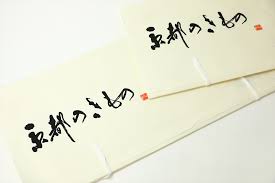 京都のきもの
京都のきもの